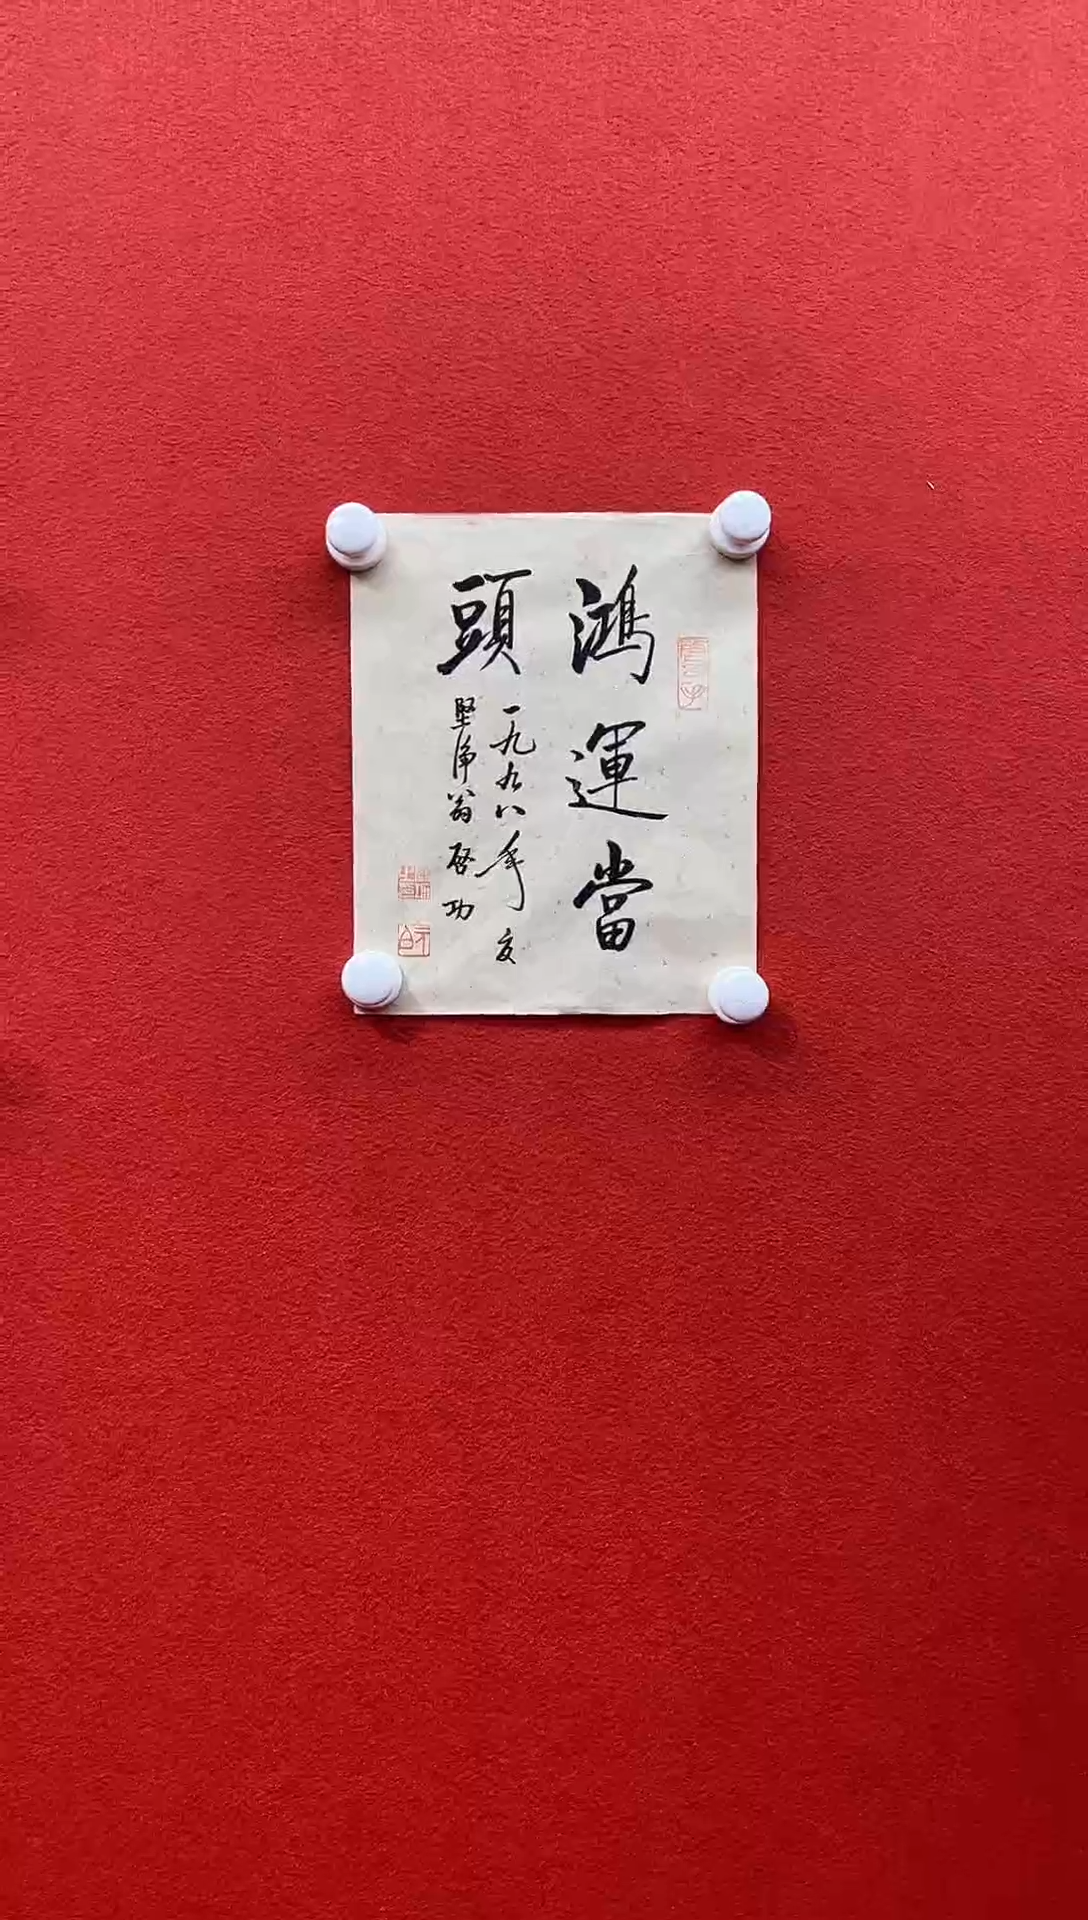 鴻運當
頭
一九九八年夏
堅净翁啓功